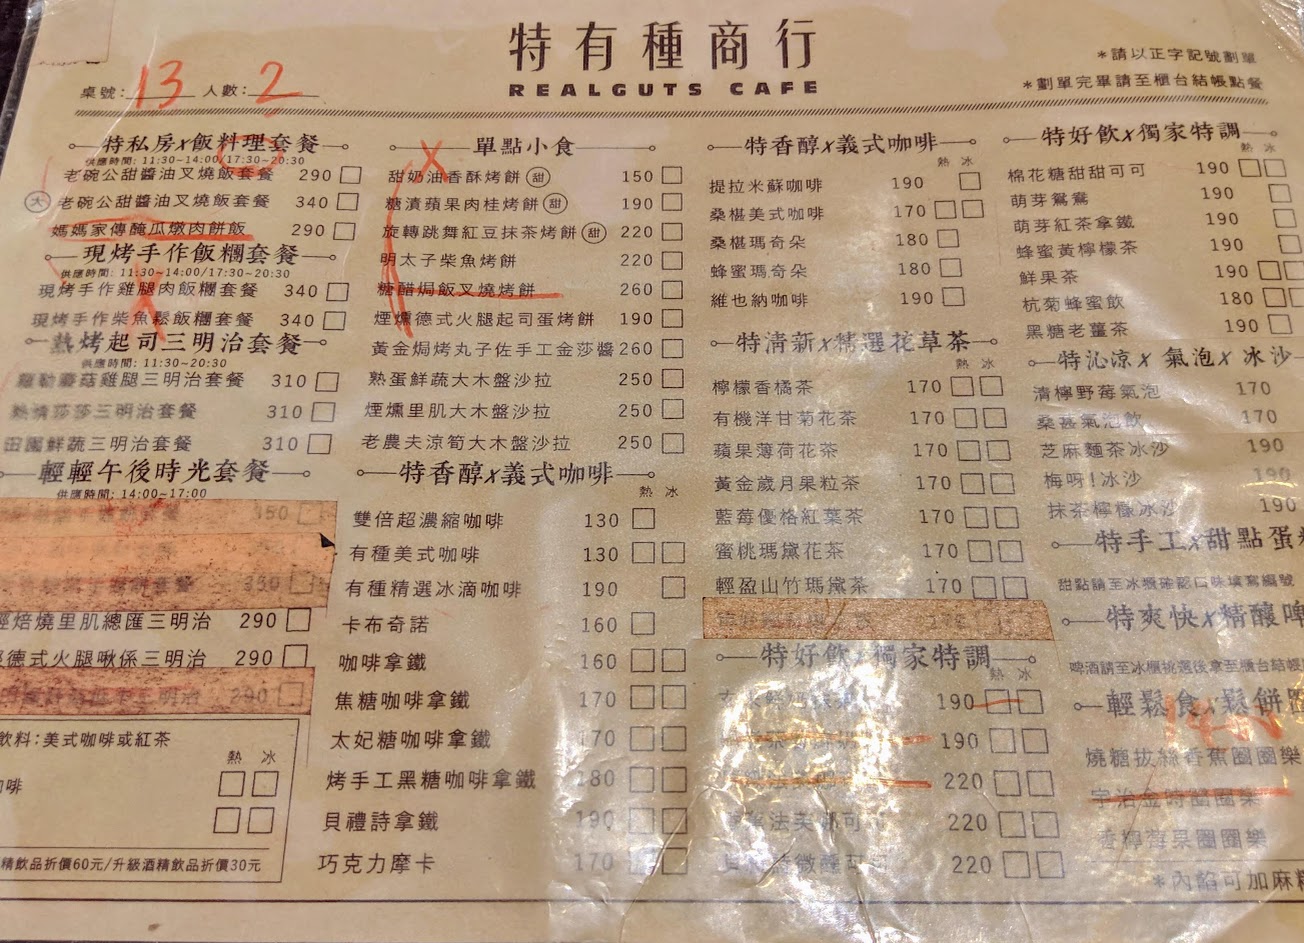 特有種商行
REALGUTS CAFE
桌號: 13 人數: 2
*請以正字記號劃單
*劃單完畢請至櫃台結帳點餐
特私房x飯料理套餐
供應時間: 11:30~14:00/17:30~20:30
老碗公甜醬油叉燒飯套餐 290
大 老碗公甜醬油叉燒飯套餐 340
媽媽家傳醃瓜燉肉餅飯 290
現烤手作飯糰套餐
供應時間: 11:30~14:00/17:30~20:30
現烤手作雞腿肉飯糰套餐 340
現烤手作柴魚鬆飯糰套餐 340
熱烤起司三明治套餐
供應時間: 11:30~20:30
蘑菇雞腿三明治套餐 310
熱情莎莎三明治套餐 310
田園鮮蔬三明治套餐 310
輕輕午後時光套餐
供應時間: 14:00~17:00
350
350
焙燒里肌總匯三明治 290
德式火腿啾係三明治 290
三明治 290
飲料:美式咖啡或紅茶
熱 冰
咖啡
精飲品折價60元/升級酒精飲品折價30元
單點小食
甜奶油香酥烤餅 甜 150
糖漬蘋果肉桂烤餅 甜 190
旋轉跳舞紅豆抹茶烤餅 甜 220
明太子柴魚烤餅 220
糖醋焗飯叉燒烤餅 260
煙燻德式火腿起司蛋烤餅 190
黃金焗烤丸子佐手工金莎醬 260
熟蛋鮮蔬大木盤沙拉 250
煙燻里肌大木盤沙拉 250
老農夫涼筍大木盤沙拉 250
特香醇x義式咖啡
熱 冰
雙倍超濃縮咖啡 130
有種美式咖啡 130
有種精選冰滴咖啡 190
卡布奇諾 160
咖啡拿鐵 160
焦糖咖啡拿鐵 170
太妃糖咖啡拿鐵 170
烤手工黑糖咖啡拿鐵 180
貝禮詩拿鐵 190
巧克力摩卡 170
特香醇x義式咖啡
熱 冰
提拉米蘇咖啡 190
桑椹美式咖啡 170
桑椹瑪奇朵 180
蜂蜜瑪奇朵 180
維也納咖啡 190
特清新x精選花草茶
熱 冰
檸檬香橘茶 170
有機洋甘菊花茶 170
蘋果薄荷花茶 170
黃金歲月果粒茶 170
藍莓優格紅葉茶 170
蜜桃瑪黛花茶 170
輕盈山竹瑪黛茶 170
特好飲x獨家特調
熱 冰
190
190
220
220
220
特好飲x獨家特調
熱 冰
棉花糖甜甜可可 190
萌芽鴛鴦 190
萌芽紅茶拿鐵 190
蜂蜜黃檸檬茶 190
鮮果茶 190
杭菊蜂蜜飲 180
黑糖老薑茶 190
特沁涼x氣泡x冰沙
清檸野莓氣泡 170
桑甚氣泡飲 170
芝麻麵茶冰沙 190
梅呀!冰沙 190
抹茶檸檬冰沙 190
特手工x甜點蛋糕
甜點請至冰櫃確認口味填寫編號
特爽快x精釀啤
啤酒請至冰櫃挑選後拿至櫃台結帳
輕鬆食x鬆餅圈
燒糖拔絲香蕉圈圈樂
宇治金時圈圈樂
香檸莓果圈圈樂
*內餡可加麻糬